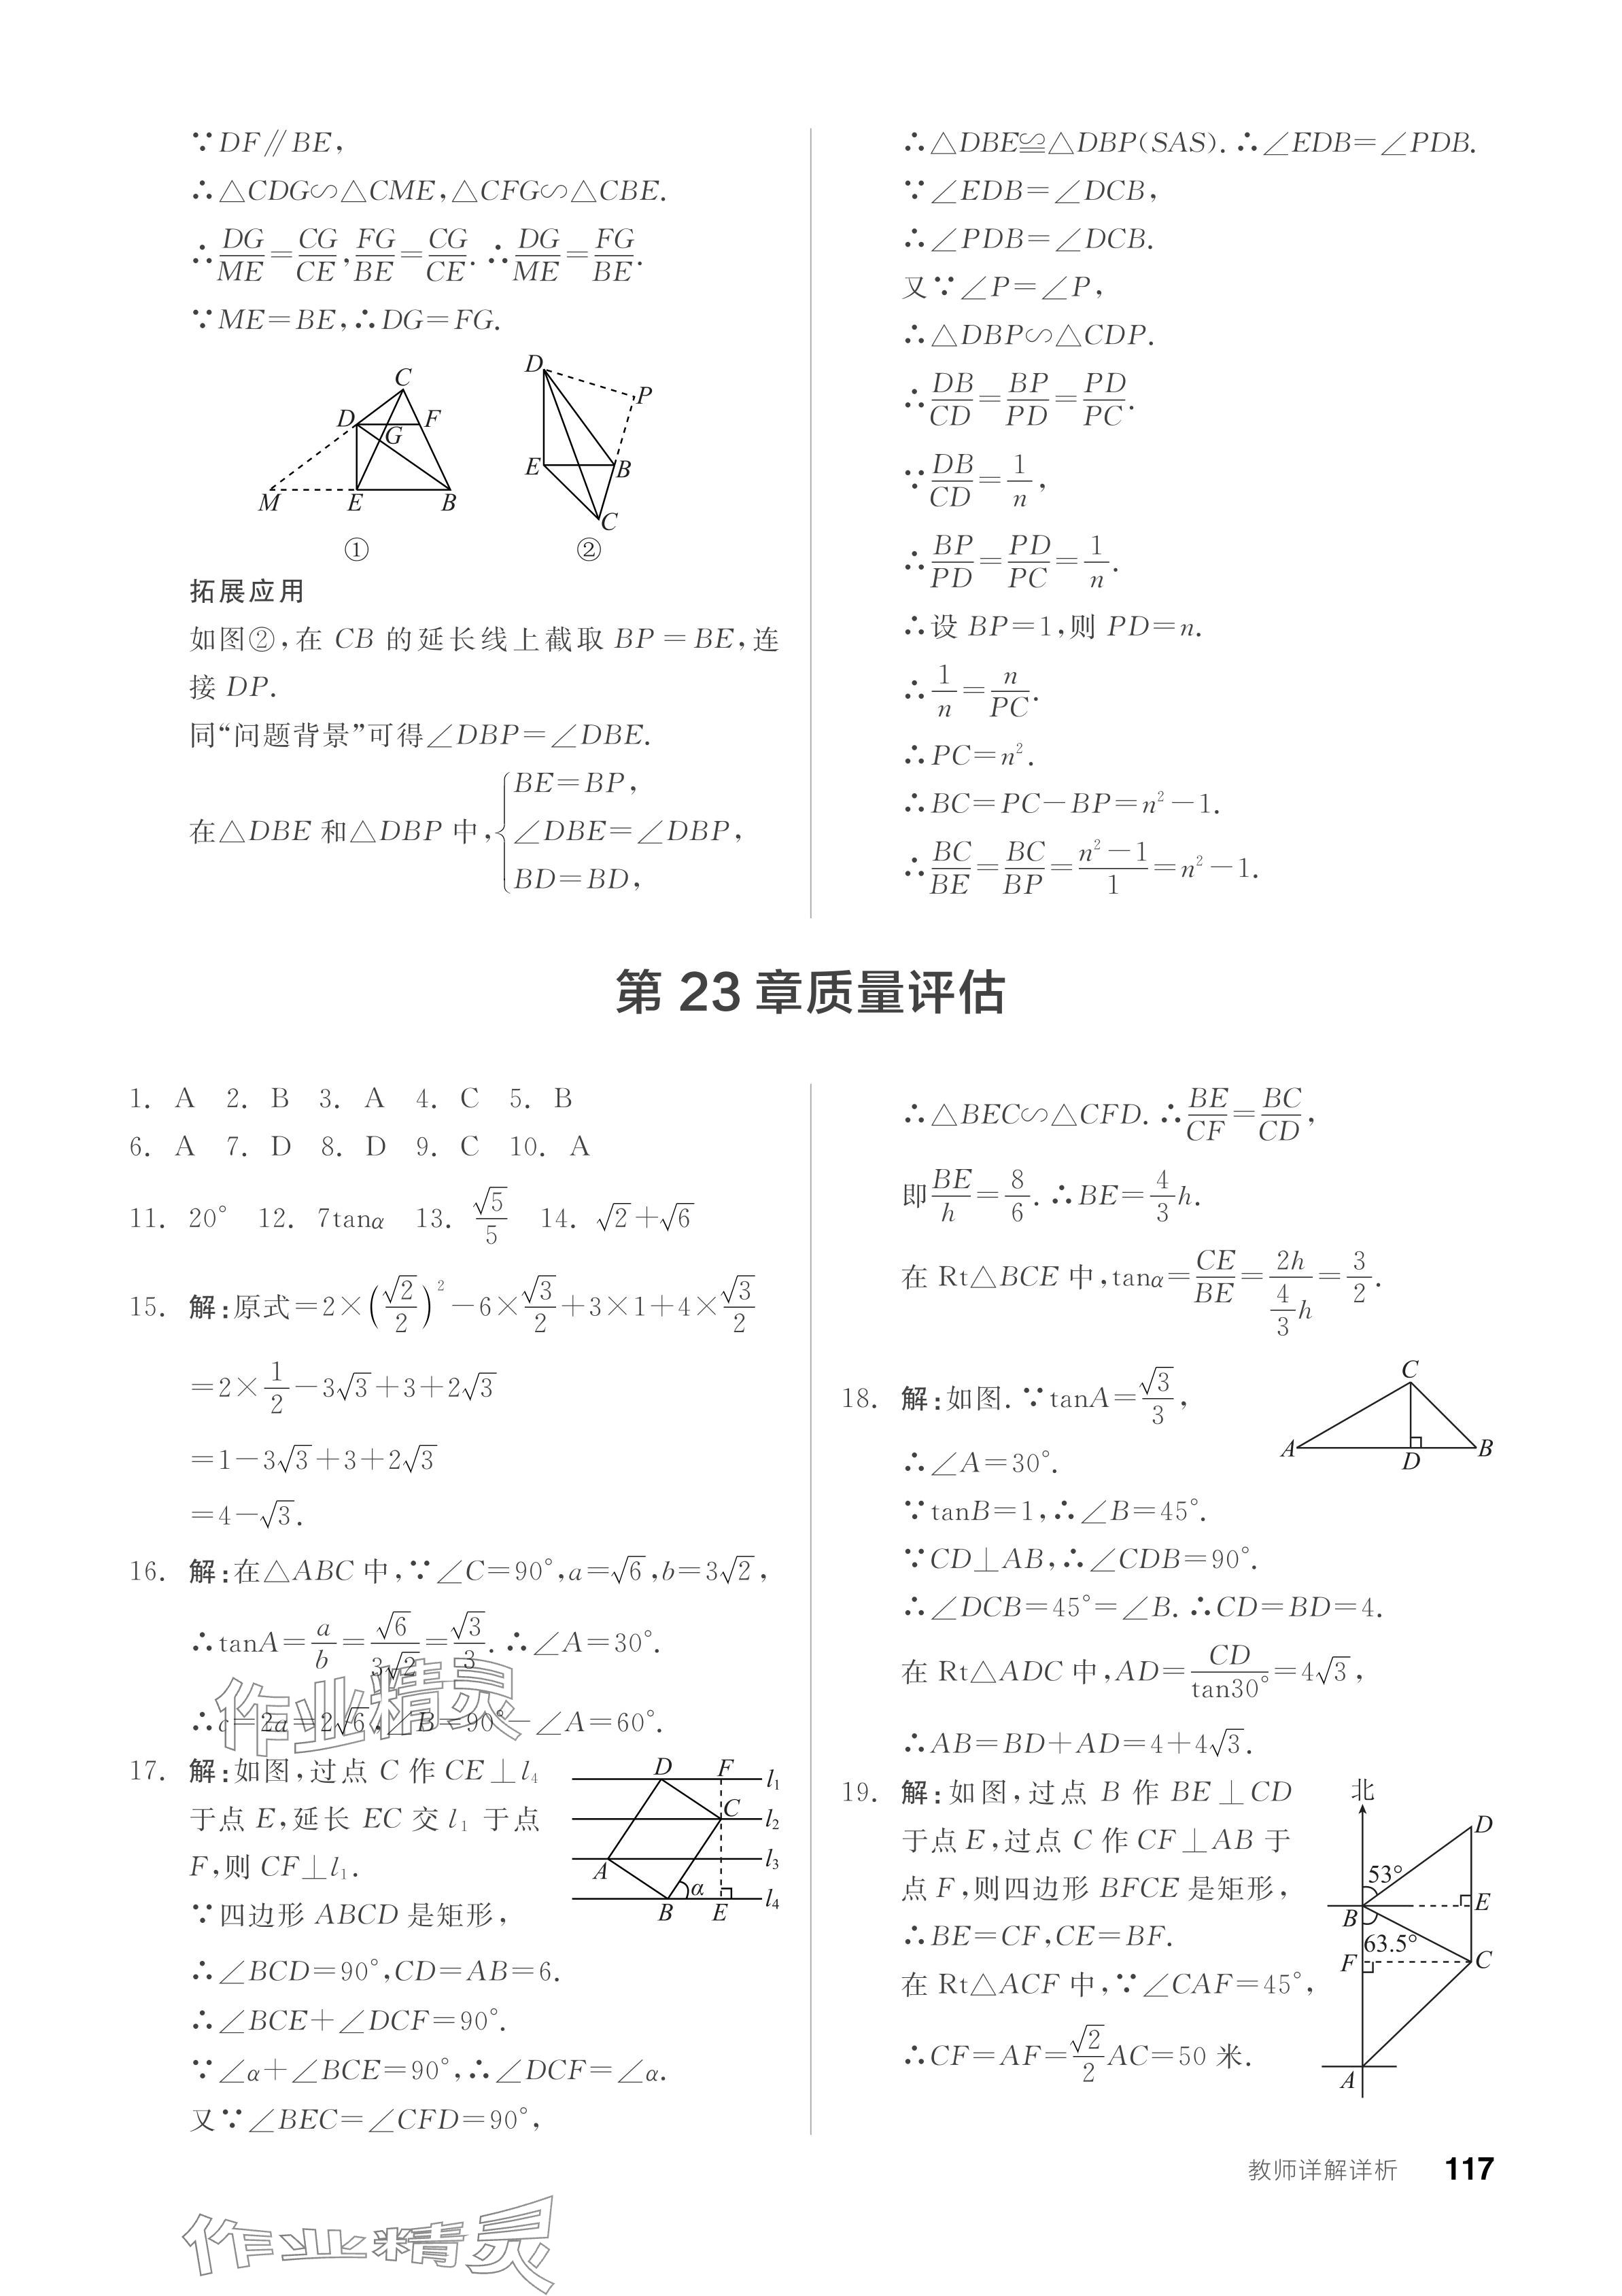 ∵DF∥BE,
∴△CDG∽△CME,△CFG∽△CBE.
∴DG/ME=CG/CE,FG/BE=CG/CE.∴DG/ME=FG/BE.
∵ME=BE,∴DG=FG.
C
D
F
G
M
E
B
①
D
P
E
B
C
②
拓展应用
如图②,在 CB 的延长线上截取 BP=BE,连
接 DP.
同“问题背景”可得∠DBP=∠DBE.
在△DBE 和△DBP 中,{BE=BP,
∠DBE=∠DBP,
BD=BD,
∴△DBE≌△DBP(SAS).∴∠EDB=∠PDB.
∵∠EDB=∠DCB,
∴∠PDB=∠DCB.
又∵∠P=∠P,
∴△DBP∽△CDP.
∴DB/CD=BP/PD=PD/PC.
∵DB/CD=1/n,
∴BP/PD=PD/PC=1/n.
∴设 BP=1,则 PD=n.
∴1/n=n/PC.
∴PC=n².
∴BC=PC-BP=n²-1.
∴BC/BE=BC/BP=(n²-1)/1=n²-1.
第 23 章质量评估
1. A 2. B 3. A 4. C 5. B
6. A 7. D 8. D 9. C 10. A
11. 20° 12. 7tanα 13. √5/5 14. √2+√6
15. 解:原式=2×(√2/2)²-6×√3/2+3×1+4×√3/2
=2×1/2-3√3+3+2√3
=1-3√3+3+2√3
=4-√3.
16. 解:在△ABC 中,∵∠C=90°,a=√6,b=3√2,
∴tanA=a/b=√6/3√2=√3/3.∴∠A=30°.
∴c=2a=2√6,∠B=90°-∠A=60°.
17. 解:如图,过点 C 作 CE⊥l₄
于点 E,延长 EC 交 l₁ 于点
F,则 CF⊥l₁.
∵四边形 ABCD 是矩形,
D F l₁
C l₂
A l₃
α l₄
B E
∴∠BCD=90°,CD=AB=6.
∴∠BCE+∠DCF=90°.
∵∠α+∠BCE=90°,∴∠DCF=∠α.
又∵∠BEC=∠CFD=90°,
∴△BEC∽△CFD.∴BE/CF=BC/CD,
即BE/h=8/6.∴BE=4/3h.
在 Rt△BCE 中,tanα=CE/BE=2h/(4/3h)=3/2.
18. 解:如图.∵tanA=√3/3,
C
A D B
∴∠A=30°.
∵tanB=1,∴∠B=45°.
∵CD⊥AB,∴∠CDB=90°.
∴∠DCB=45°=∠B.∴CD=BD=4.
在 Rt△ADC 中,AD=CD/tan30°=4√3,
∴AB=BD+AD=4+4√3.
19. 解:如图,过点 B 作 BE⊥CD
于点 E,过点 C 作 CF⊥AB 于
点 F,则四边形 BFCE 是矩形,
∴BE=CF,CE=BF.
在 Rt△ACF 中,∵∠CAF=45°,
∴CF=AF=√2/2AC=50 米.
北
D
53°
E
B
63.5°
F
C
A
教师详解详析 117
作业精灵
作业精灵